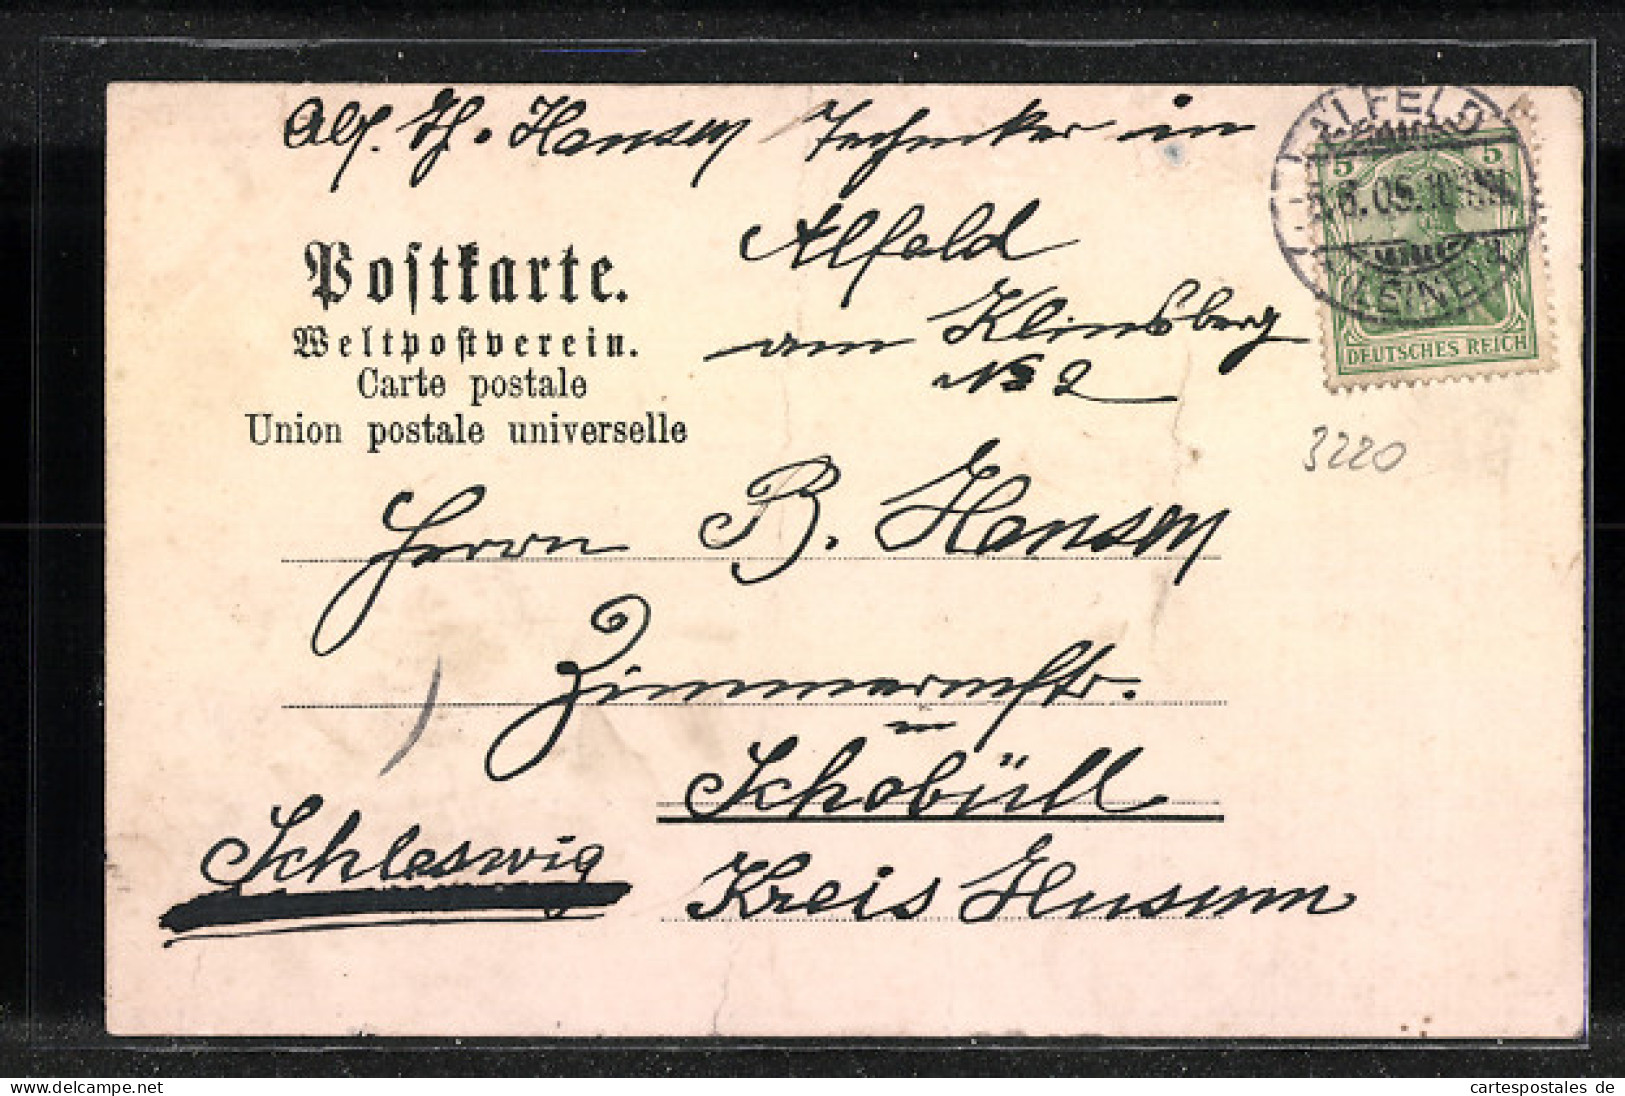 Abs. Th. Hansen Techniker in
Alfeld
am Klinsberg
No 2
Postkarte.
Weltpostverein.
Carte postale
Union postale universelle
ALFELD
5 5
6.05.10
(LEINE)
DEUTSCHES REICH
3220
Herrn B. Hansen
Zimmermstr.
in
Schobüll
Schleswig
Kreis Husum
cartespostales.de